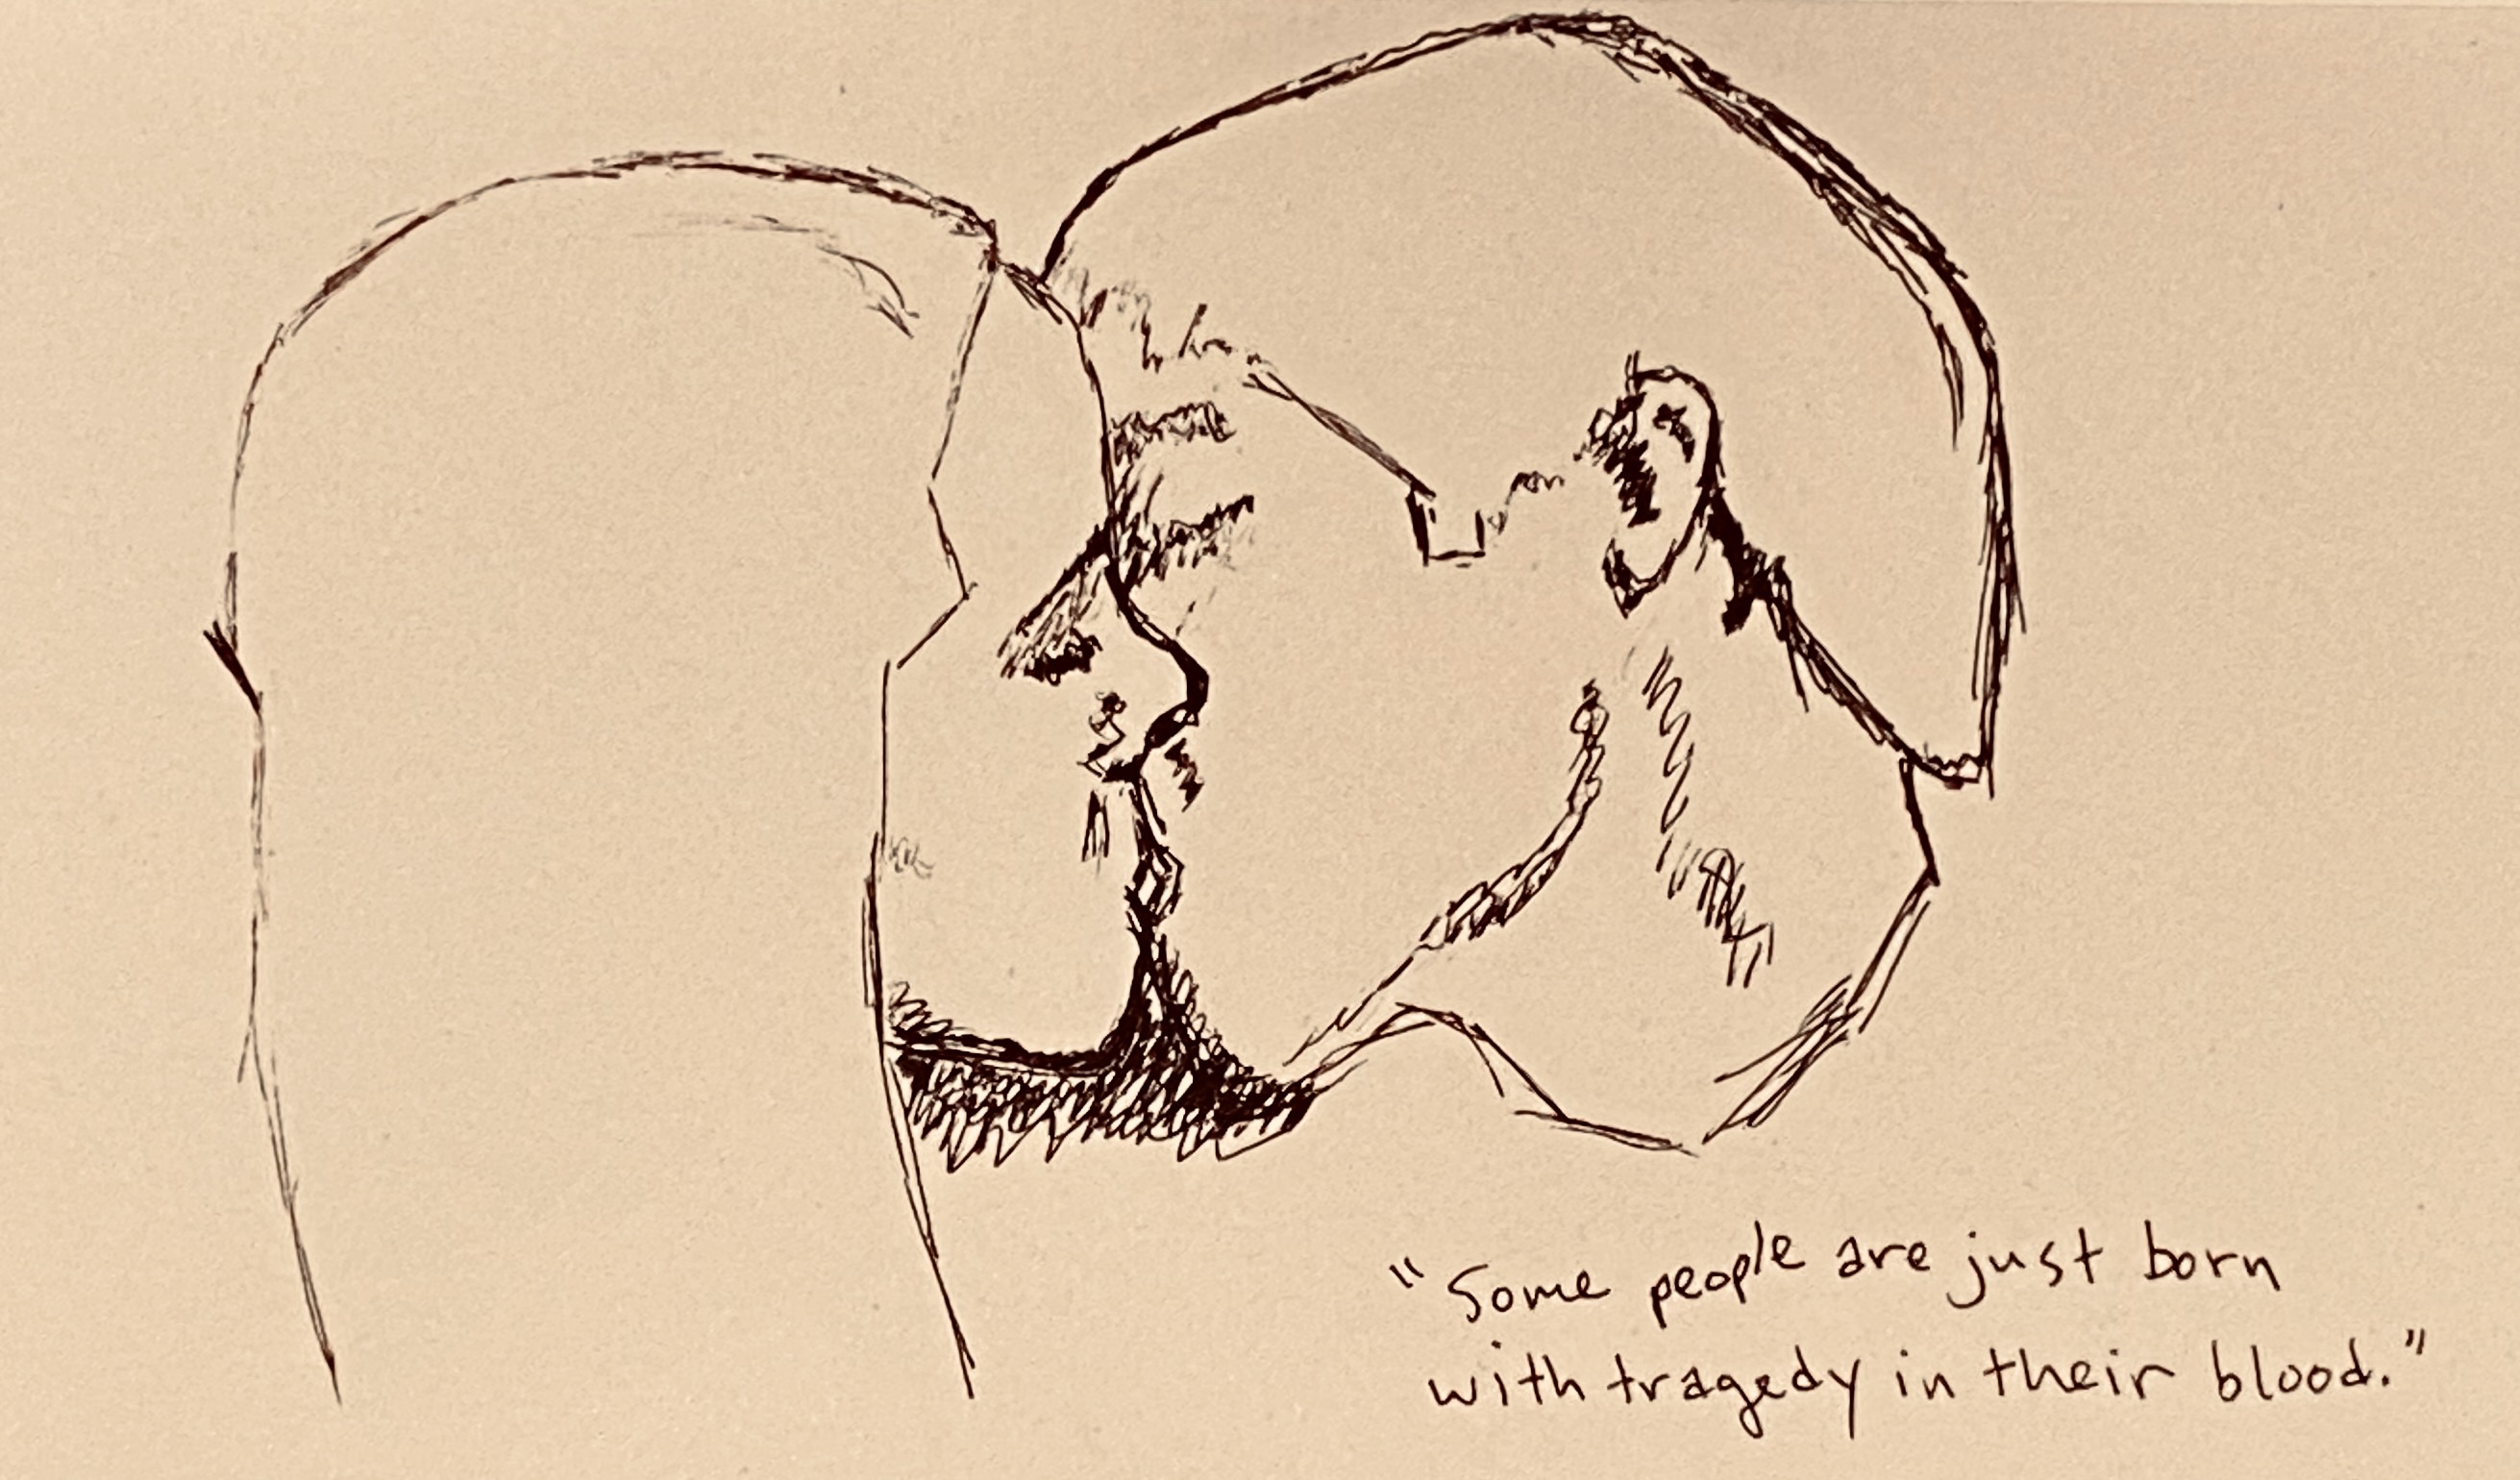 "Some people are just born
with tragedy in their blood."